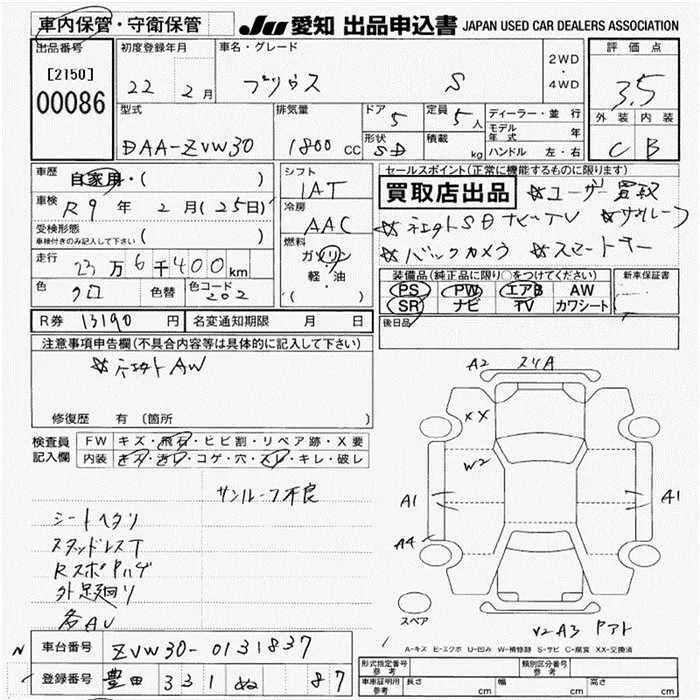 車内保管・守衛保管
JU 愛知 出品申込書 JAPAN USED CAR DEALERS ASSOCIATION
出品番号 初度登録年月 車名・グレード 2WD・4WD 評価点
[2150] 22 2月 プリウス S 3.5
00086
型式 排気量 ドア 5 定員 5人 ディーラー・並行 外装 内装
モデル年式 年
DAA-ZVW30 1800 CC 形状 SD 積載 kg ハンドル 左・右 C B
車歴 自家用・( ) シフト セールスポイント(正常に機能するものに限ります)
IAT 買取店出品 ☆ユーザー買取
車検 R9年2月(25日) 冷房
AAC ☆社外SDナビTV ☆サンルーフ
受検形態 ( )
車検付きのみ記入して下さい
燃料 ☆バックカメラ ☆スマートキー
走行 23万6千400km ガソリン 装備品(純正品に限り○をつけてください) 新車保証書
軽・油 PS PW エアB AW
色 クロ 色替 色コード 202 ( ) SR ナビ TV カワシート
R券 13190円 名変通知期限 月 日 後日品
注意事項申告欄(不具合内容等は具体的に記入して下さい)
☆社外AW
A2 スリA
修復歴 有 (箇所 )
XX
検査員記入欄 FW キズ・飛石・ヒビ割・リペア跡・X要
内装 キズ・汚レ・コゲ・穴・スレ・キレ・破レ
W2
サンルーフ不良
A1 A1
シートヘタリ
スタッドレスT
A4
RスポPハゲ
外足廻り
スペア
各AU
V2 A3 Pアト
A-キズ E-エクボ U-凹み W-補修跡 S-サビ C-腐食 XX-交換済
N 車台番号 ZVW30-0131837
登録番号 豊田 331 ぬ 87
形式指定番号 参考 類別区分番号 参考
車庫証明用 参考 長さ cm 幅 cm 高さ cm